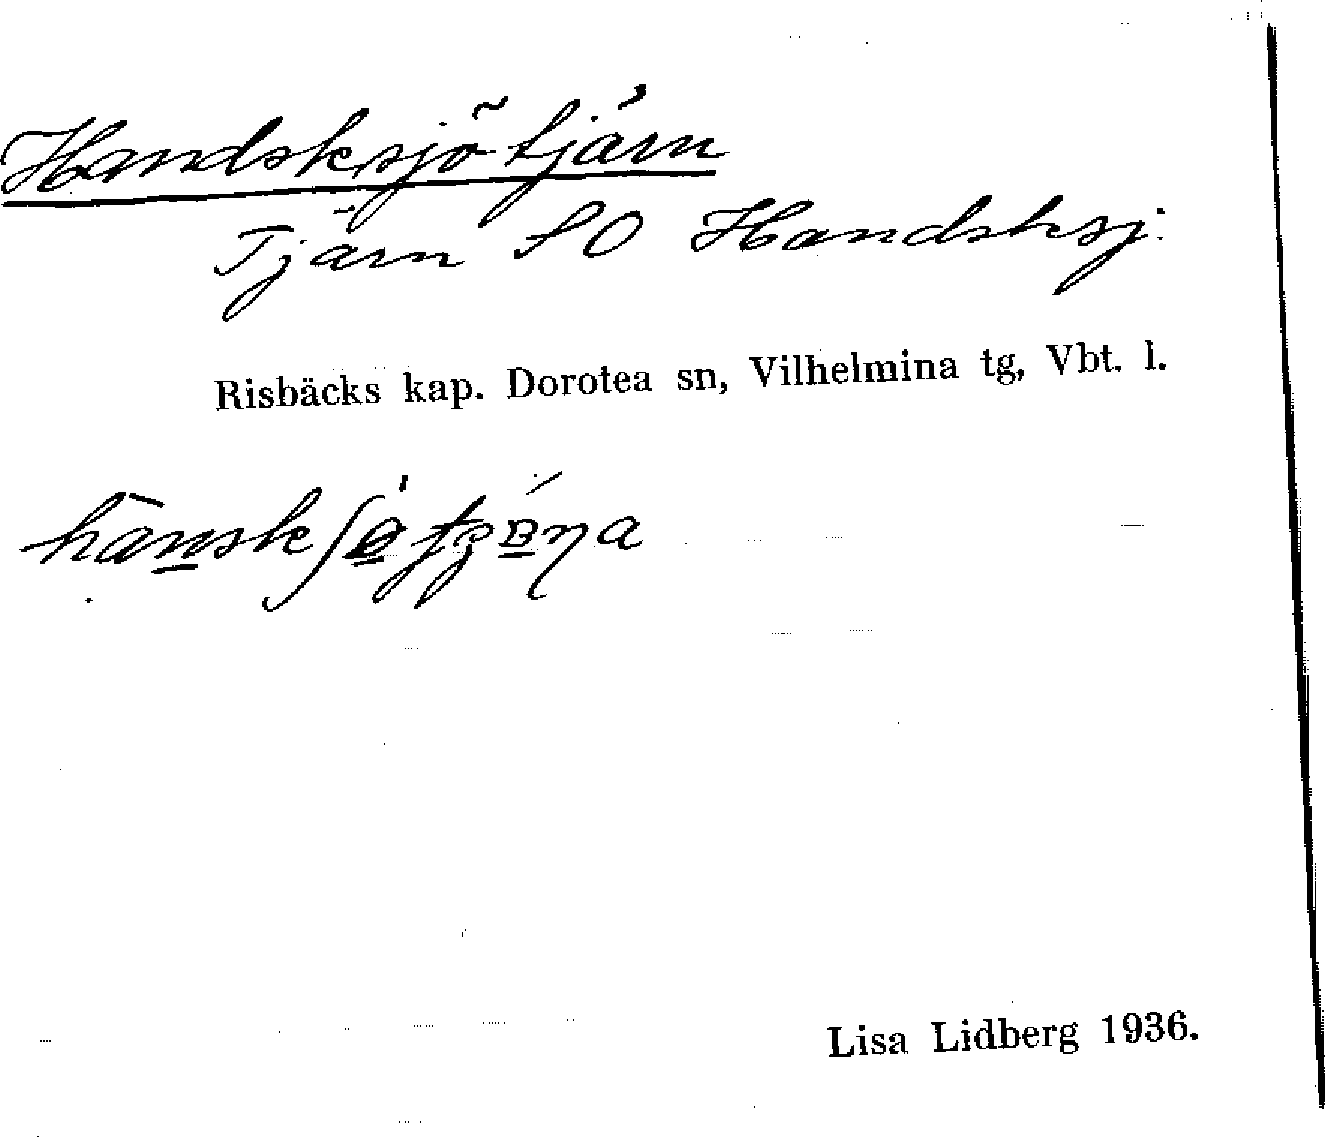 Handsksjötjärn
Tjärn SO Handsksj.
Risbäcks kap. Dorotea sn, Vilhelmina tg, Vbt. l.
Lisa Lidberg 1936.